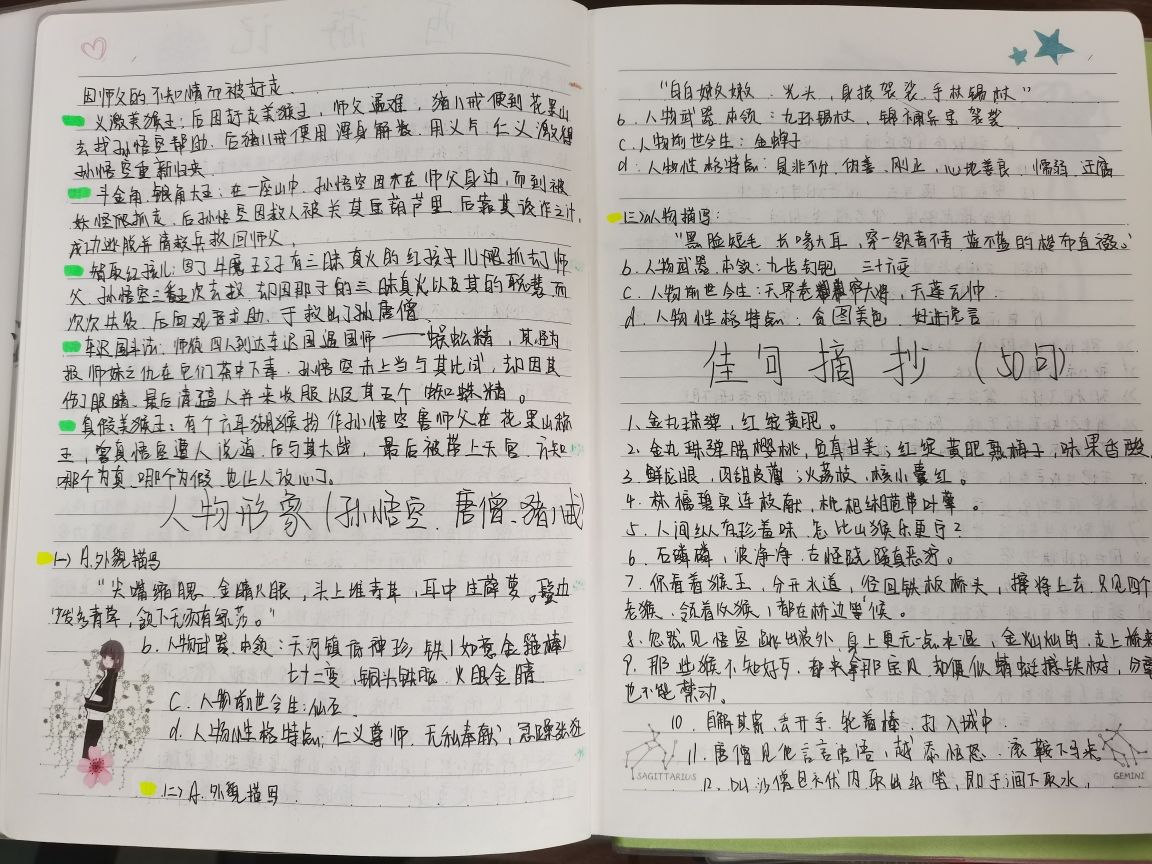 因师父的不知情而被赶走.
义激美猴王:后因赶走美猴王,师父遇难,猪八戒便到花果山
去找孙悟空帮助.后猪八戒使用浑身解数.用义气.仁义激得
孙悟空重新归来.
斗金角、银角大王:在一座山中.孙悟空因不在师父身边,而到被
妖怪抓走.后孙悟空因救人被关其压葫芦里.后靠其诈之计,
成功逃脱并请救兵救回师父,
智取红孩儿:因了牛魔王之子有三昧真火的红孩子儿抓去了师
父.孙悟空三番次去救.却因那子的三昧真火以及其的
次次失败.后向观音求助.于救出了孙唐僧.
车迟国斗法:师徒四人到达车迟国遇国师——蜈蚣精,其
报师妹之仇在它们茶中下毒.孙悟空未上当与其比试,却因其
伤了眼睛.最后请高人并来收服以及其五个蜘蛛精。
真假美猴王:有个六耳猕猴扮作孙悟空害师父在花果山称
王,害真悟空遭人说道.后与其大战,最后被带上天宫.方知
哪个为真.哪个为假.也让人放心了。
人物形象(孙悟空、唐僧、猪八戒
(一)A.外貌描写
“尖嘴缩腮,金睛火眼,头上堆苔草,耳中生薜萝。鬓边
少发多青草,颔下无须有绿莎。”
b.人物武器.本领:天河镇底神珍铁(如意金箍棒)
七十二变,铜头铁脑.火眼金睛
C.人物前世今生:仙石
d.人物性格特点:仁义尊师.无私奉献,急躁张狂
(二)A.外貌描写
“白白嫩嫩.光头,身披袈裟.手杖锡杖”
b.人物武器.本领:九环锡杖,锦襕异宝袈裟
C.人物前世今生:金蝉子
d.人物性格特点:是非不分.伪善.刚正,心地善良,懦弱.迂腐
(三)人物描写:
“黑脸短毛.长喙大耳,穿一领青不青.蓝不蓝的梭布直裰。”
b.人物武器.本领:九齿钉钯 三十六变
C.人物前世今生:天界大将,天蓬元帅
d.人物性格特点:贪图美色.好进谗言
佳句摘抄(50句)
1.金丸珠弹,红绽黄肥。
2.金丸珠弹腊樱桃,色真甘美;红绽黄肥熟梅子,味果香酸
3.鲜龙眼,肉甜皮薄;火荔枝,核小囊红。
4.林檎碧实连枝献,枇杷缃苞带叶擎。
5.人间纵有珍羞味.怎比山猴乐更宁?
6.石磷磷,波净净.古怪跷蹊真恶狞。
7.你看着猴王,分开水道,径回铁板桥头,撺将上去.只见四个
老猴.领着众猴,都在桥边等候。
8.忽然见悟空跳出波外,身上更无一点水湿,金灿灿的,走上桥来
9.那些猴不知好歹,都来拿那宝贝.却便似蜻蜓撼铁树,分毫
也不能禁动。
10.自解其索,丢开手.轮着棒,打入城中
11.唐僧见他言言语语,越添恼怒.滚鞍下马来
12.叫沙僧包袱内取出纸笔,即于涧下取水,
SAGITTARIUS
GEMINI